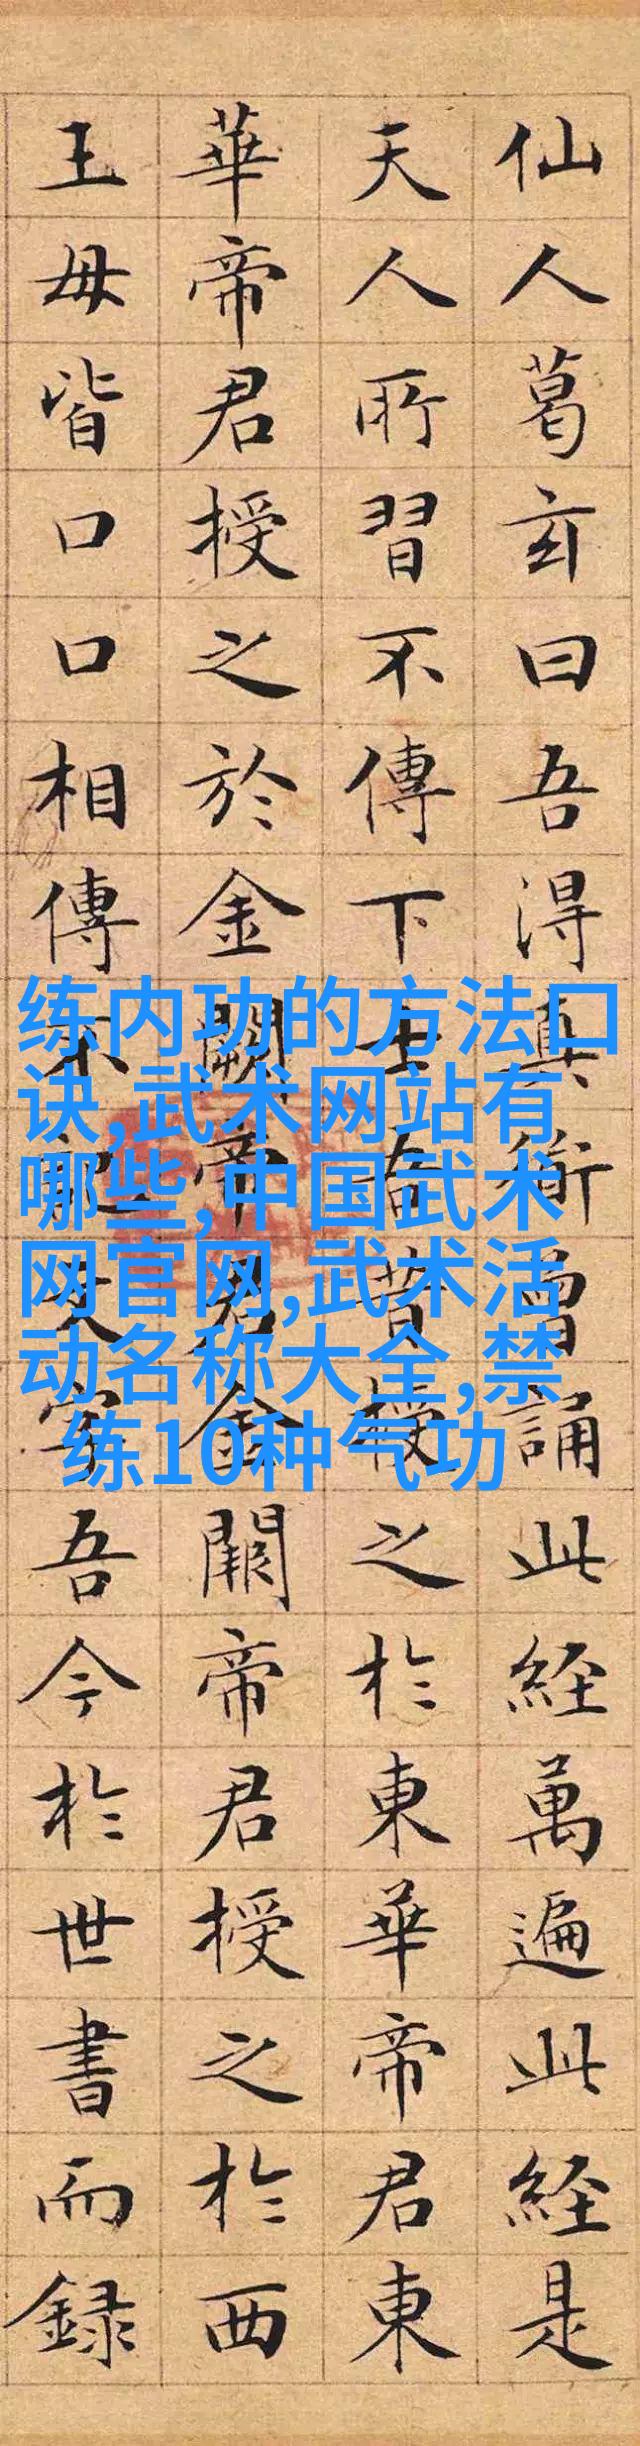 仙人葛玄曰吾淂真術曾誦此経萬遍此経是
天人所習不傳下士吾昔授之於東華帝君東
華帝君授之於金闕帝君金闕帝君授之於西
王母皆口口相傳不記文字吾今於世書而録
练内功的方法口
诀,武术网站有
哪些,中国武术
网官网,武术活
动名称大全,禁
练10种气功